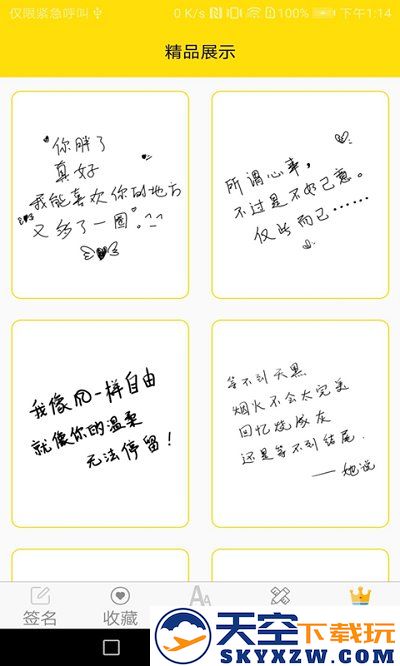 仅限紧急呼叫
0 K/s
100%
下午1:14
精品展示
你胖了
真好
我能喜欢你的地方
又多了一圈。^_^
所谓心事,
不过是不如己意。
仅此而已……
我像风一样自由
就像你的温柔
无法停留!
等不到天黑
烟火不会太完美
回忆烧成灰
还是等不到结尾.
——她说
签名
收藏
AA
天空下载玩
SKYXZW.COM